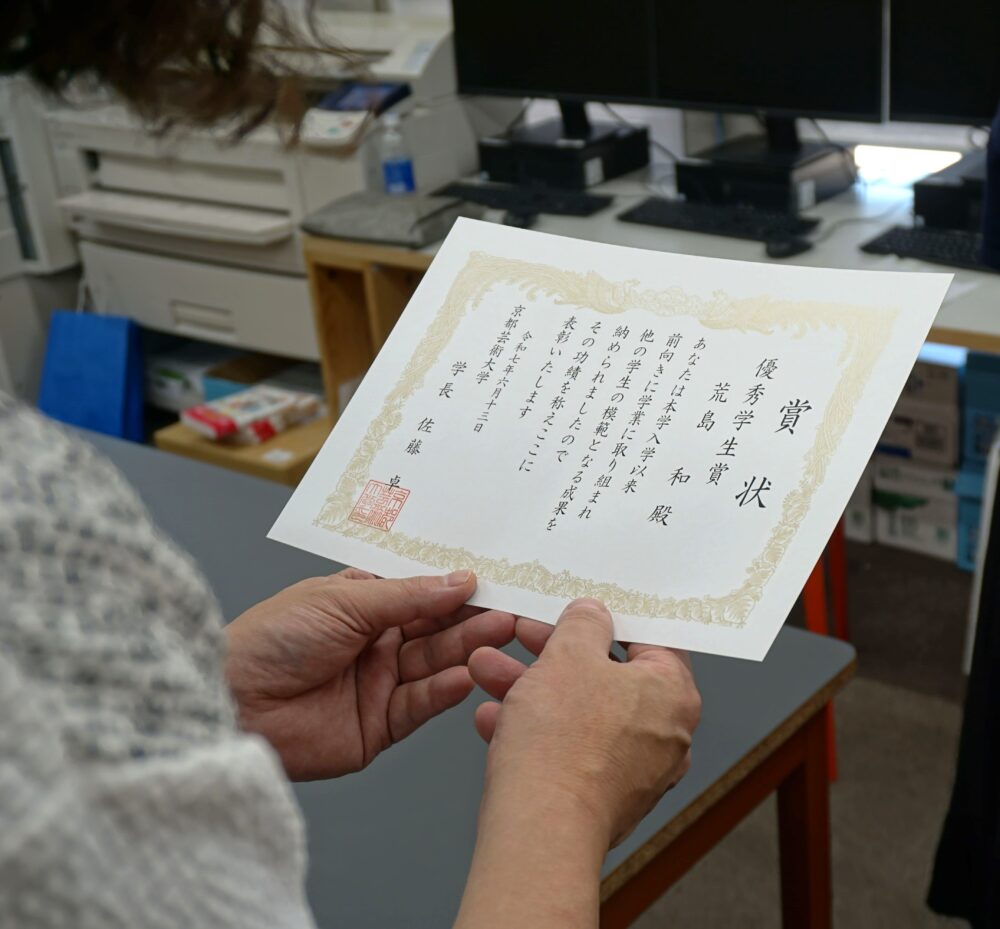 賞状
優秀学生賞
荒島 和 殿
あなたは本学入学以来
前向きに学業に取り組まれ
他の学生の模範となる成果を
納められましたので
その功績を称えここに
表彰いたします
令和七年六月十三日
京都芸術大学
学長 佐藤 卓